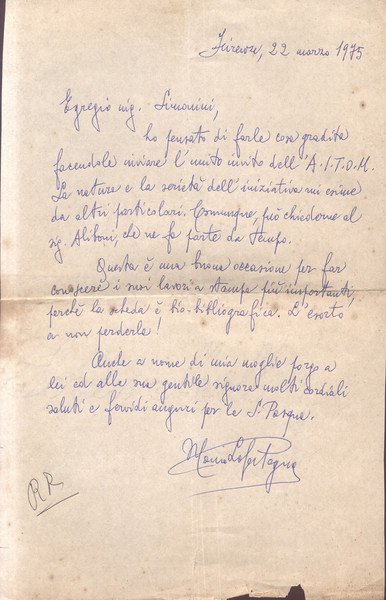 Firenze, 22 marzo 1975
Egregio sig. Simonini,
ho pensato di farle cosa gradita
facendole inviare l'unito invito dell'A.I.T.O.M.
La natura e la serietà dell'iniziativa mi esime
da altri particolari. Comunque può chiederne al
sig. Aliboni, che ne fa parte da tempo.
Questa è una buona occasione per far
conoscere i suoi lavori a stampa più importanti,
perché la scheda è bio-bibliografica. L'esorto
a non perderla!
Anche a nome di mia moglie porgo a
lei ed alla sua gentile signora molti cordiali
saluti e fervidi auguri per la S. Pasqua.
RR